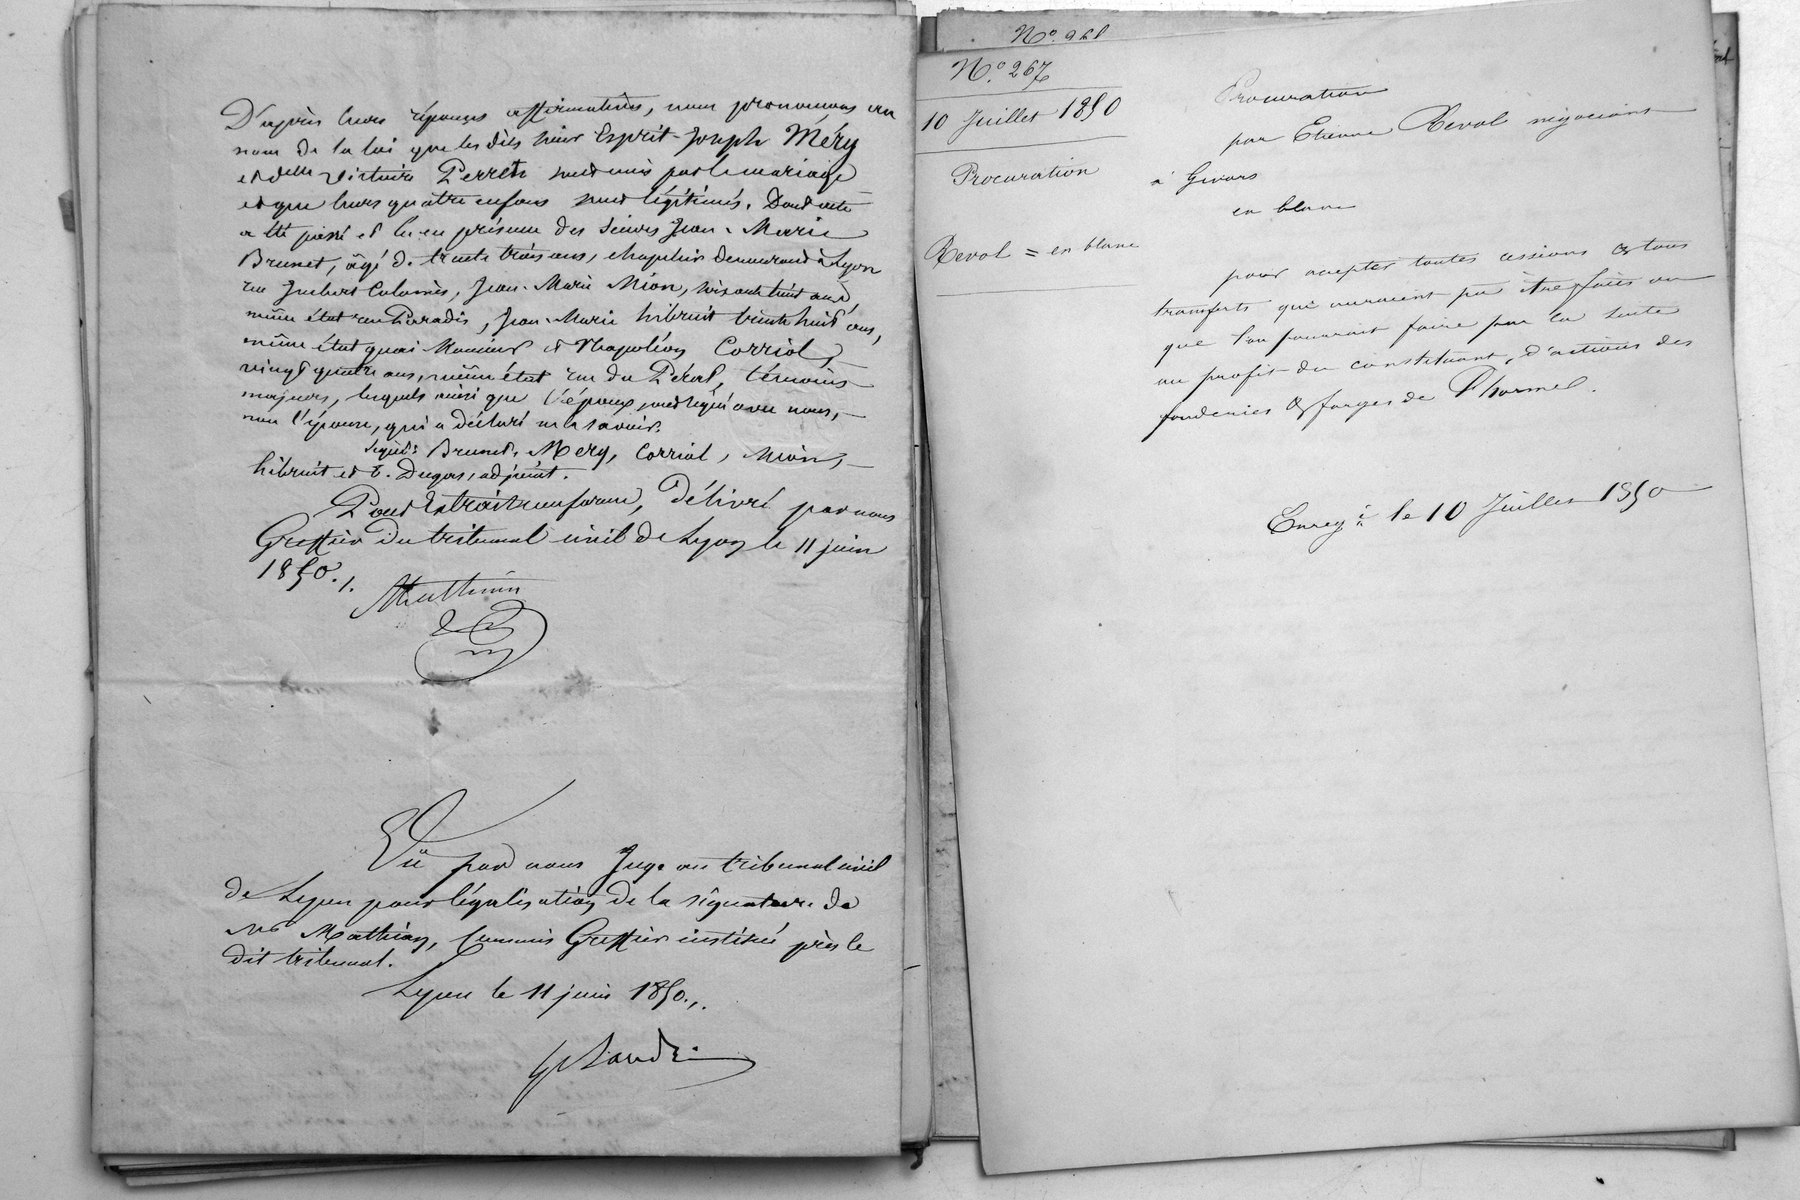 D'après leurs réponses affirmatives, nous prononcons au
nom de la loi que les dits sieur Esprit-Joseph Méry
et delle Victoire Perret sont unis par le mariage
et que leurs quatre enfans sont légitimés. Dont acte
a été passé et lu en présence des Sieurs Jean-Marie
Brunet, âgé de trente trois ans, chapelier demeurant à Lyon
rue Imbert Colomès, Jean-Marie Mion, ans,
même état rue Paradis, Jean-Marie hébruit trente huit ans,
même état quai et Napoléon Corriol,
vingt quatre ans, même état rue du Pérat, témoins
majeurs, lesquels ainsi que l'époux ont signé avec nous,
non l'épouse, qui a déclaré ne le savoir.
Signé: Brunet, Mery, Corriol, Mion,
hébruit et E. Dugas, adjoint.
Pour Extrait conforme, Délivré par nous
Greffier du tribunal civil de Lyon le 11 juin
1850./.
Mathian
Vu par nous Juge au tribunal civil
de Lyon pour légalisation de la signature de
Mr Mathian, Commis Greffier près le
dit tribunal.
Lyon le 11 juin 1850./.
N.° 261
N.° 267
10 Juillet 1850
Procuration
Revol = en blanc
Procuration
par Etienne Revol négociant
à Givors
en blanc
pour accepter toutes cessions & tous
transferts qui auraient pu être faits ou
que l'on pourrait faire par la suite
au profit du constituant, d'actions des
fonderies & forges de l'horme.
Enreg.é le 10 Juillet 1850